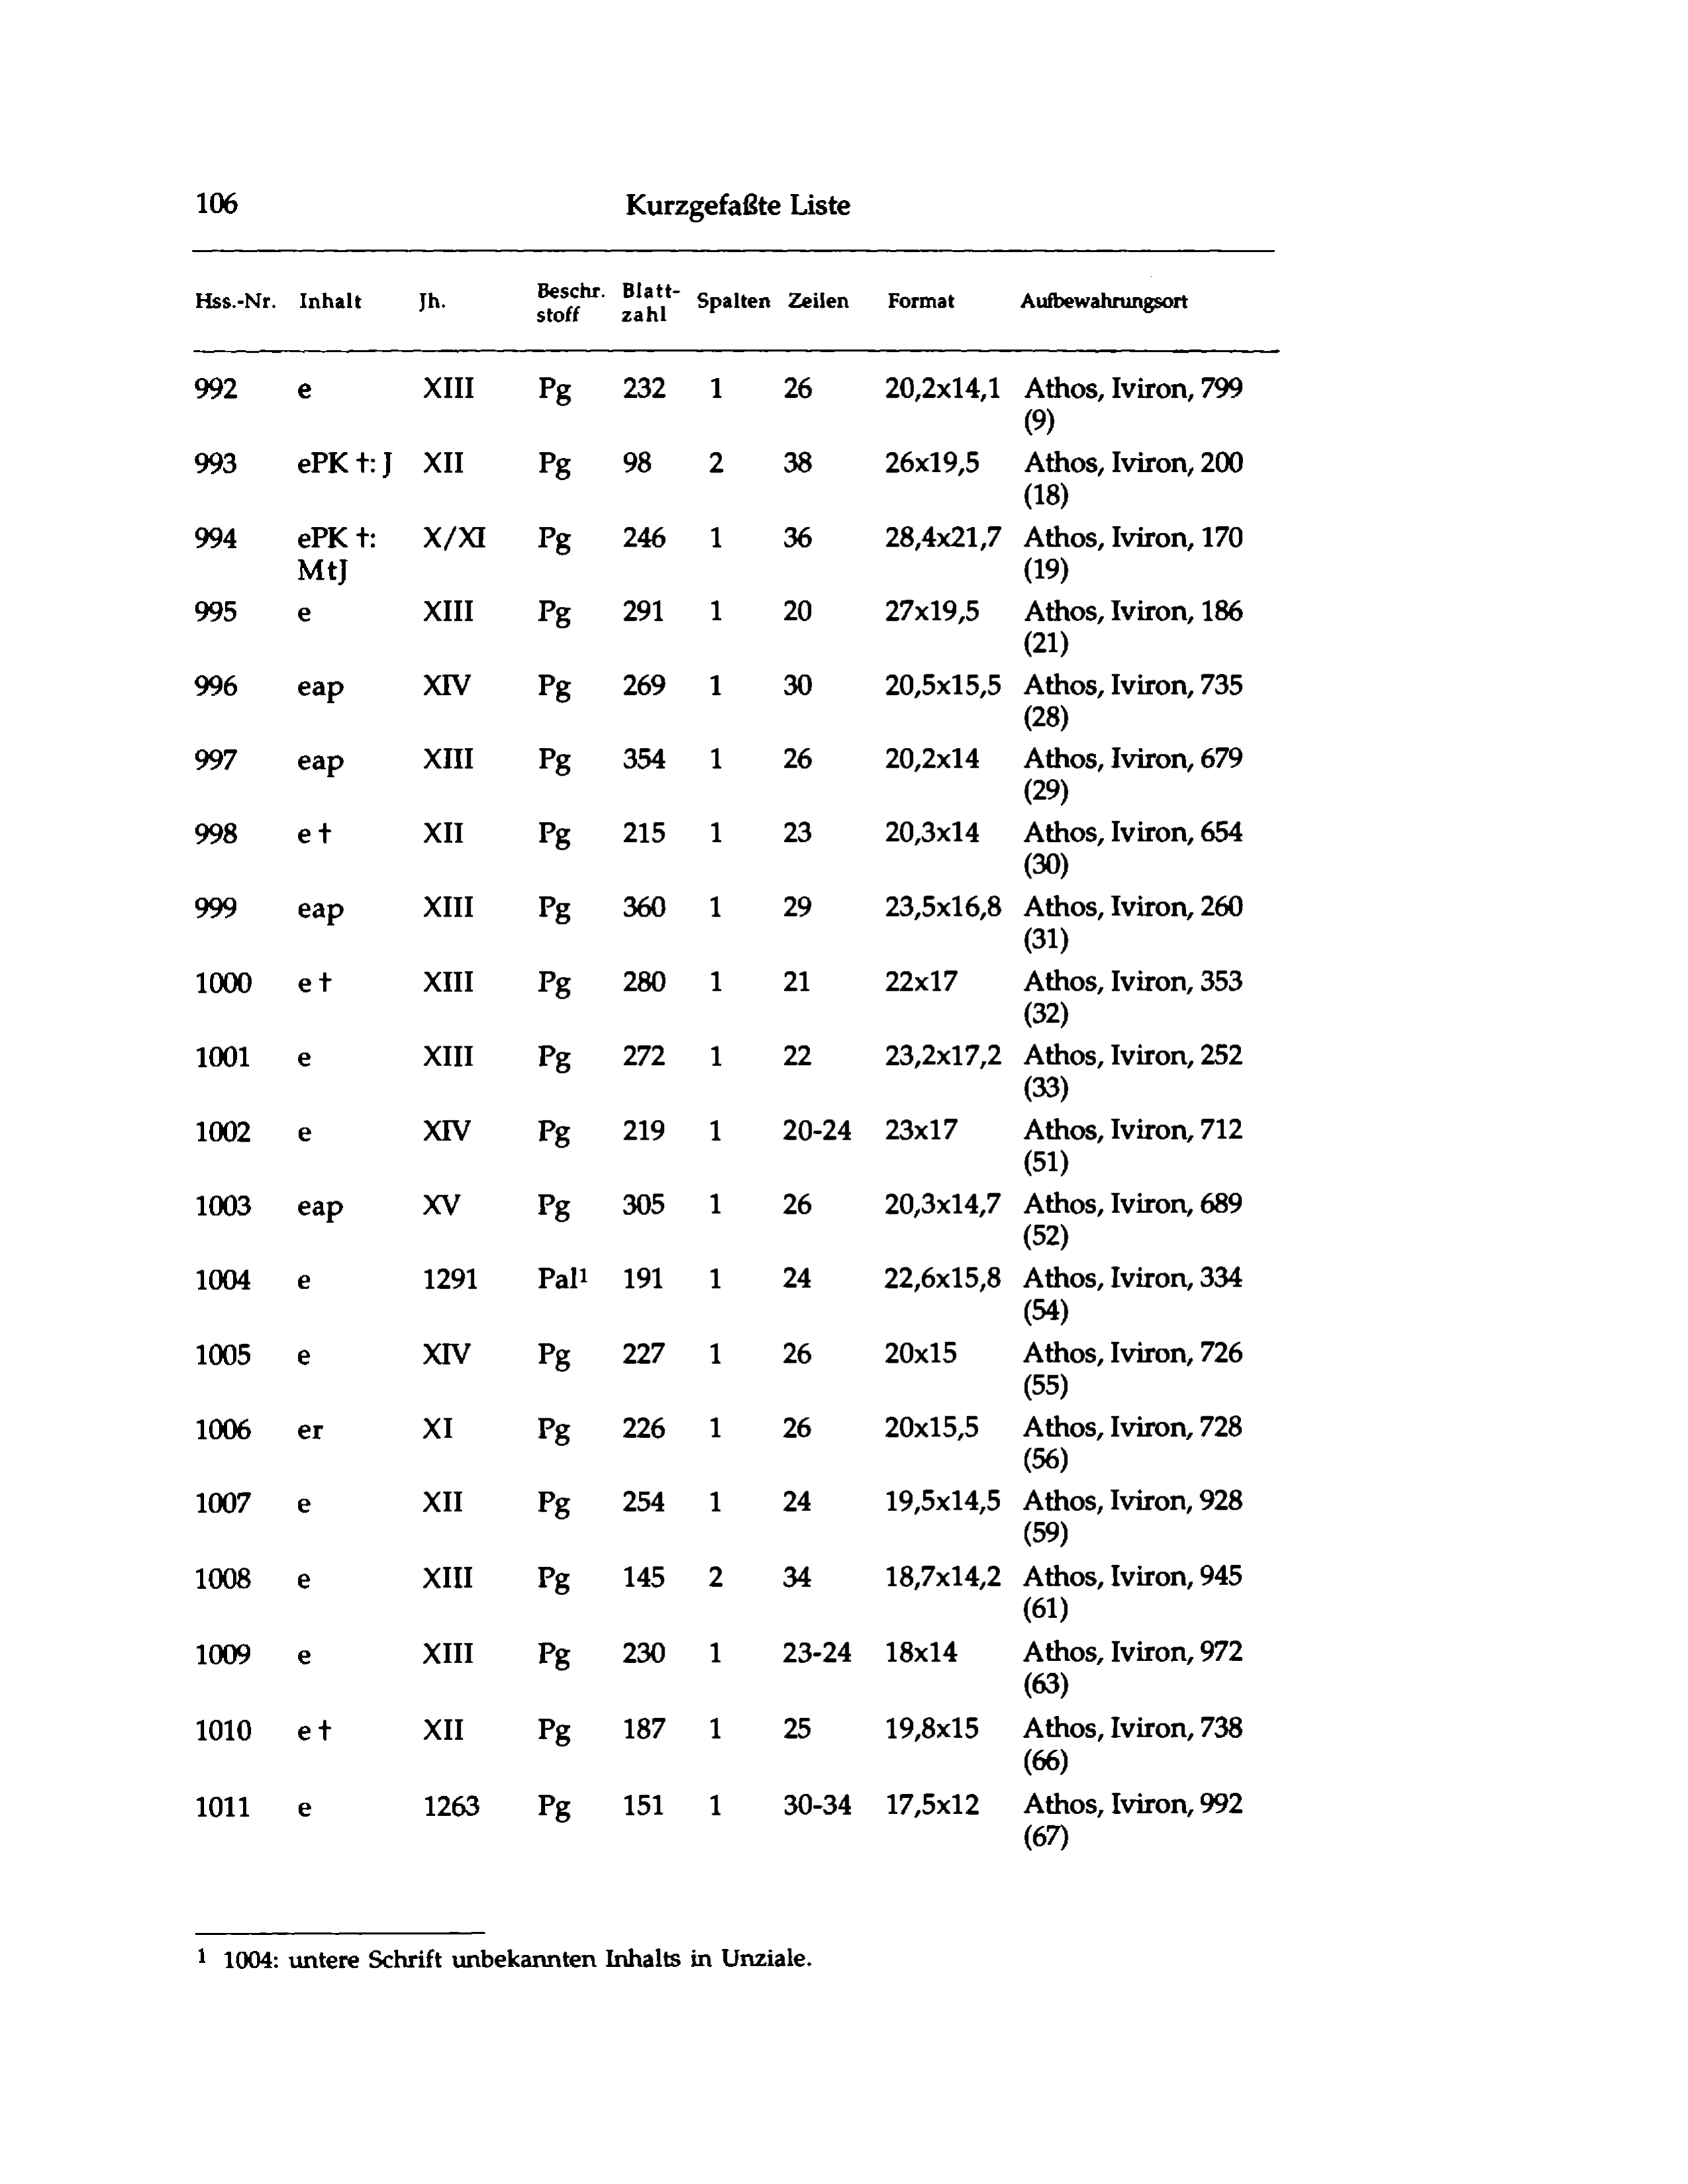 106 Kurzgefaßte Liste
Hss.-Nr. Inhalt Jh. Beschr. stoff Blatt- zahl Spalten Zeilen Format Aufbewahrungsort
992 e XIII Pg 232 1 26 20,2x14,1 Athos, Iviron, 799
(9)
993 ePK †: J XII Pg 98 2 38 26x19,5 Athos, Iviron, 200
(18)
994 ePK †: X/XI Pg 246 1 36 28,4x21,7 Athos, Iviron, 170
MtJ (19)
995 e XIII Pg 291 1 20 27x19,5 Athos, Iviron, 186
(21)
996 eap XIV Pg 269 1 30 20,5x15,5 Athos, Iviron, 735
(28)
997 eap XIII Pg 354 1 26 20,2x14 Athos, Iviron, 679
(29)
998 e † XII Pg 215 1 23 20,3x14 Athos, Iviron, 654
(30)
999 eap XIII Pg 360 1 29 23,5x16,8 Athos, Iviron, 260
(31)
1000 e † XIII Pg 280 1 21 22x17 Athos, Iviron, 353
(32)
1001 e XIII Pg 272 1 22 23,2x17,2 Athos, Iviron, 252
(33)
1002 e XIV Pg 219 1 20-24 23x17 Athos, Iviron, 712
(51)
1003 eap XV Pg 305 1 26 20,3x14,7 Athos, Iviron, 689
(52)
1004 e 1291 Pal¹ 191 1 24 22,6x15,8 Athos, Iviron, 334
(54)
1005 e XIV Pg 227 1 26 20x15 Athos, Iviron, 726
(55)
1006 er XI Pg 226 1 26 20x15,5 Athos, Iviron, 728
(56)
1007 e XII Pg 254 1 24 19,5x14,5 Athos, Iviron, 928
(59)
1008 e XIII Pg 145 2 34 18,7x14,2 Athos, Iviron, 945
(61)
1009 e XIII Pg 230 1 23-24 18x14 Athos, Iviron, 972
(63)
1010 e † XII Pg 187 1 25 19,8x15 Athos, Iviron, 738
(66)
1011 e 1263 Pg 151 1 30-34 17,5x12 Athos, Iviron, 992
(67)
¹ 1004: untere Schrift unbekannten Inhalts in Unziale.